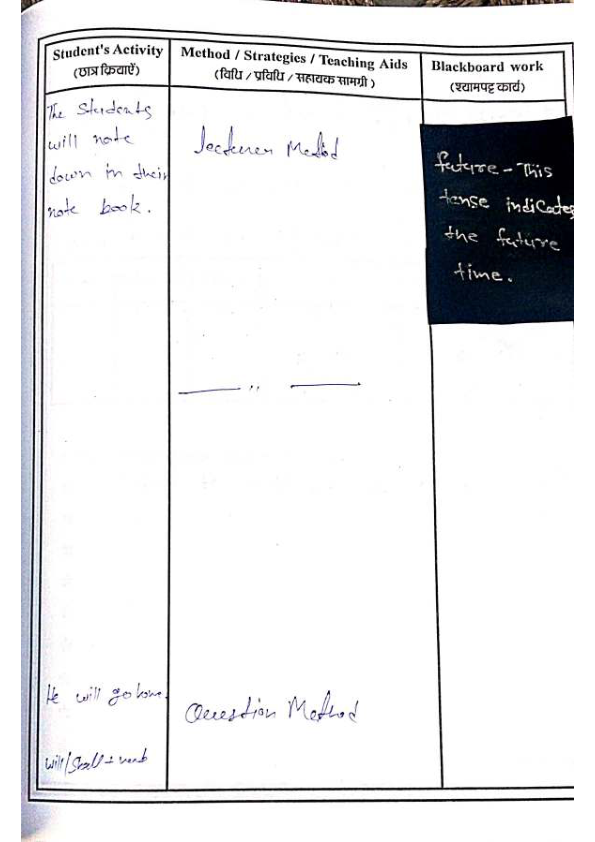 Student's Activity
(छात्र क्रियाऐं)
Method / Strategies / Teaching Aids
(विधि / प्रविधि / सहायक सामग्री)
Blackboard work
(श्यामपट्ट कार्य)
The Students
will note
down in their
note book.
Lecturer Method
future - This
tense indicates
the future
time.
"
He will go home.
Question Method
will/Shall + verb